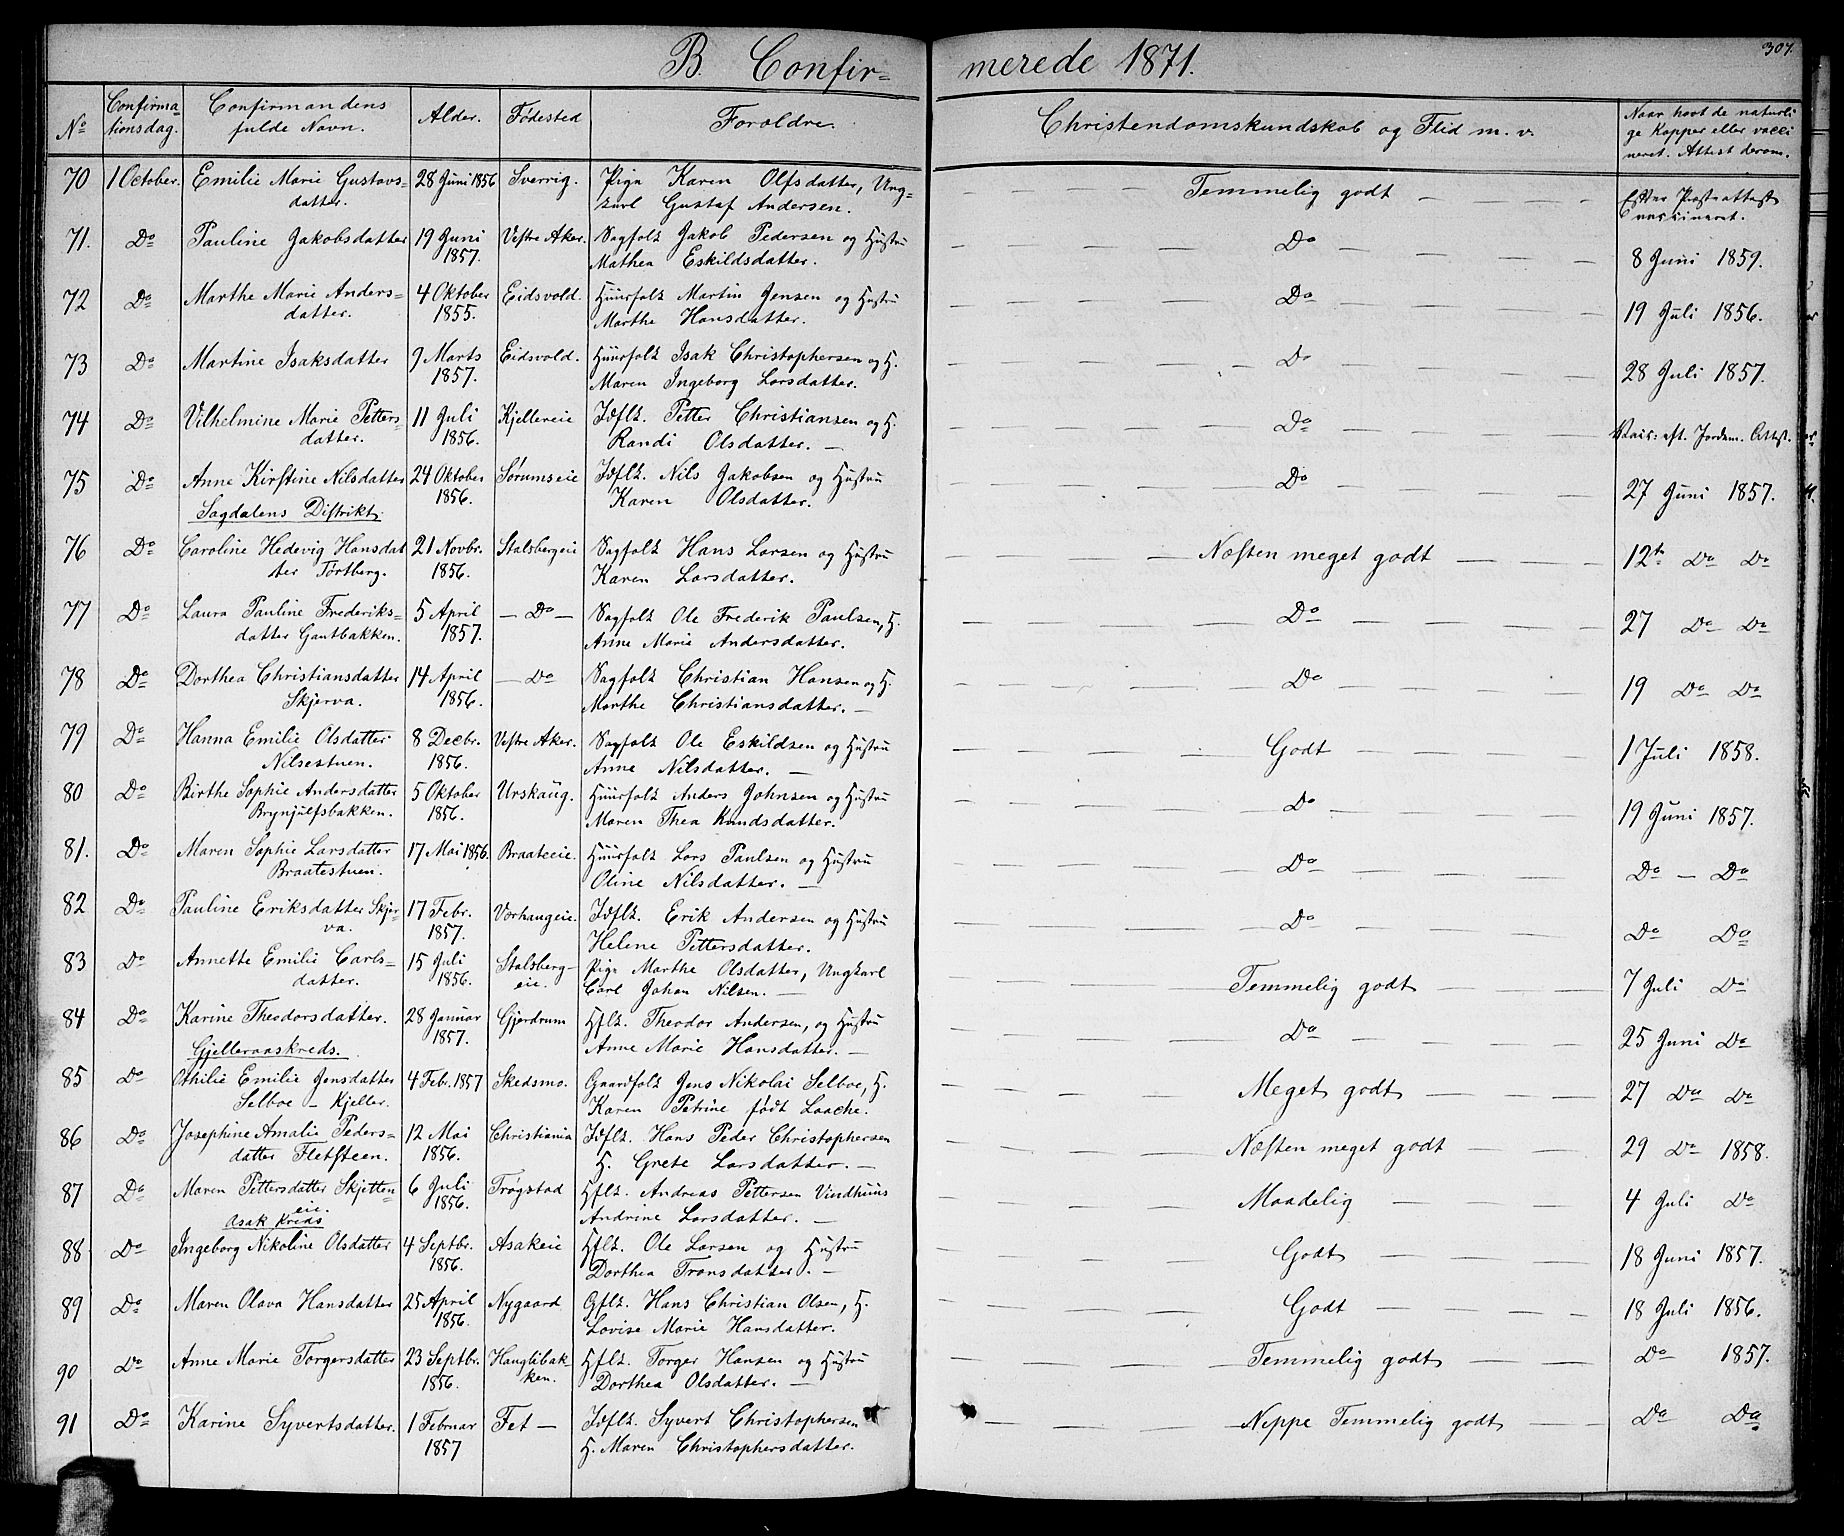 307.
B. Confir= merede 1871.
No Confirma tionsdag. Confirmandens fulde Navn. Alder. Fødested Forældre. Christendomskundskab og Flid m. v. Naar havt de naturli ge Kopper eller vacci neret. Attest derom.
70 1 October. Emilie Marie Gustavs= 28 Juni 1856 Sverrig. Pige Karen Olfsdatter, Ung= Temmelig godt Efter Præsteattest
datter. karl Gustaf Andersen. vaccineret.
71. Do Pauline Jakobsdatter 19 Juni Vestre Aker. Sagfolk Jakob Pedersen og Hustru Do 8 Juni 1859.
1857. Mathea Eskildsdatter.
72 Do Marthe Marie Anders= 4 Oktober Eidsvold. Huusfolk Martin Jensen og Hustru Do 19 Juli 1856.
datter. 1855. Marthe Hansdatter.
73 Do Martine Isaksdatter 9 Marts Eidsvold. Huusfolk Isak Christophersen og H. Do 28 Juli 1857.
1857. Maren Ingeborg Larsdatter.
74 Do Vilhelmine Marie Petters= 11 Juli Kjellereie Idflk. Petter Christiansen og H. Do Vacc. eft. Jordem. Attest.
datter. 1856. Randi Olsdatter. —
75 Do Anne Kirstine Nilsdatter 24 Oktober Sørumseie Idflk. Nils Jakobsen og Hustru Do 27 Juni 1857.
1856. Karen Olsdatter.
Sagdalens Distrikt
76 Do Caroline Hedevig Hansdat 21 Novbr. Stalsbergeie Sagfolk Hans Larsen og Hustru Næsten meget godt 12te Do Do
ter Tørtberg. 1856. Karen Larsdatter.
77 Do Laura Pauline Frederiks= 5 April — Do — Sagfolk Ole Frederik Paulsen, H. Do 27 Do Do
datter Gantbakken. 1857. Anne Marie Andersdatter.
78 Do Dorthea Christiansdatter 14 April — Do Sagfolk Christian Hansen og H. Do 19 Do Do
Skjerva. 1856. Marthe Christiansdatter. —
79 Do Hanna Emilie Olsdatter 8 Decbr. Vestre Aker. Sagfolk Ole Eskildsen og Hustru Godt 1 Juli 1858.
Nilsestuen. 1856. Anne Nilsdatter. —
80 Do Birthe Sophie Andersdatter 5 Oktober Urskaug. Huusfolk Anders Johnsen og Hustru Do 19 Juni 1857.
Brynjulfsbakken. 1856. Maren Thea Knudsdatter.
81. Do Maren Sophie Larsdatter 17 Mai 1856. Braateeie. Huusfolk Lars Paulsen og Hustru Do Do — Do
Braatestuen. Oline Nilsdatter. —
82 Do Pauline Eriksdatter Skjer= 17 Febr. Vorhaugeie. Idflk. Erik Andersen og Hustru Do Do Do
va. 1857. Helene Pettersdatter.
83 Do Annette Emilie Carls= 15 Juli Stalsberg= Pige Marthe Olsdatter, Ungkarl Temmelig godt 7 Juli Do
datter. 1856. eie. Carl Johan Nilsen. —
84 Do Karine Theodorsdatter. 28 Januar Gjerdrum Hflk. Theodor Andersen, og Hustru Do 25 Juni Do
1857. Anne Marie Hansdatter. —
Gjelleraaskreds.
85 Do Othilie Emilie Jensdatter 4 Febr. 1857 Skedsmo. Gaardfolk Jens Nikolai Selboe, H. Meget godt 27 Do Do
Selboe — Kjeller. Karen Petrine født Laache.
86 Do Josephine Amalie Peders= 12 Mai Christiania Idflk. Hans Peder Christophersen Næsten meget godt 29 Do 1858.
datter Fletsteen. 1856. H. Grete Larsdatter. —
87 Do Maren Pettersdatter Skjetten= 6 Juli Trøgstad Hflk. Andreas Pettersen Vindhuus Maadelig 4 Juli Do
eie. 1856. Andrine Larsdatter. —
Asak Kreds
88 Do Ingeborg Nikoline Olsdatter 4 Septbr. Asakeie Hflk. Ole Larsen og Hustru Godt 18 Juni 1857.
1856. Dorthea Tronsdatter. —
89 Do Maren Olava Hansdatter 25 April Nygaard Gflk. Hans Christian Olsen, H. Godt 18 Juli 1856.
1856. Lovise Marie Hansdatter.
90 Do Anne Marie Torgersdatter 23 Septbr. Hauglibak Hflk. Torger Hansen og Hustru Temmelig godt Do 1857.
1856. ken. Dorthea Olsdatter. —
91 Do Karine Syvertsdatter. 1 Februar Fet — Idflk. Syvert Christophersen Neppe Temmelig godt Do Do
1857 H. Maren Christophersdatter.